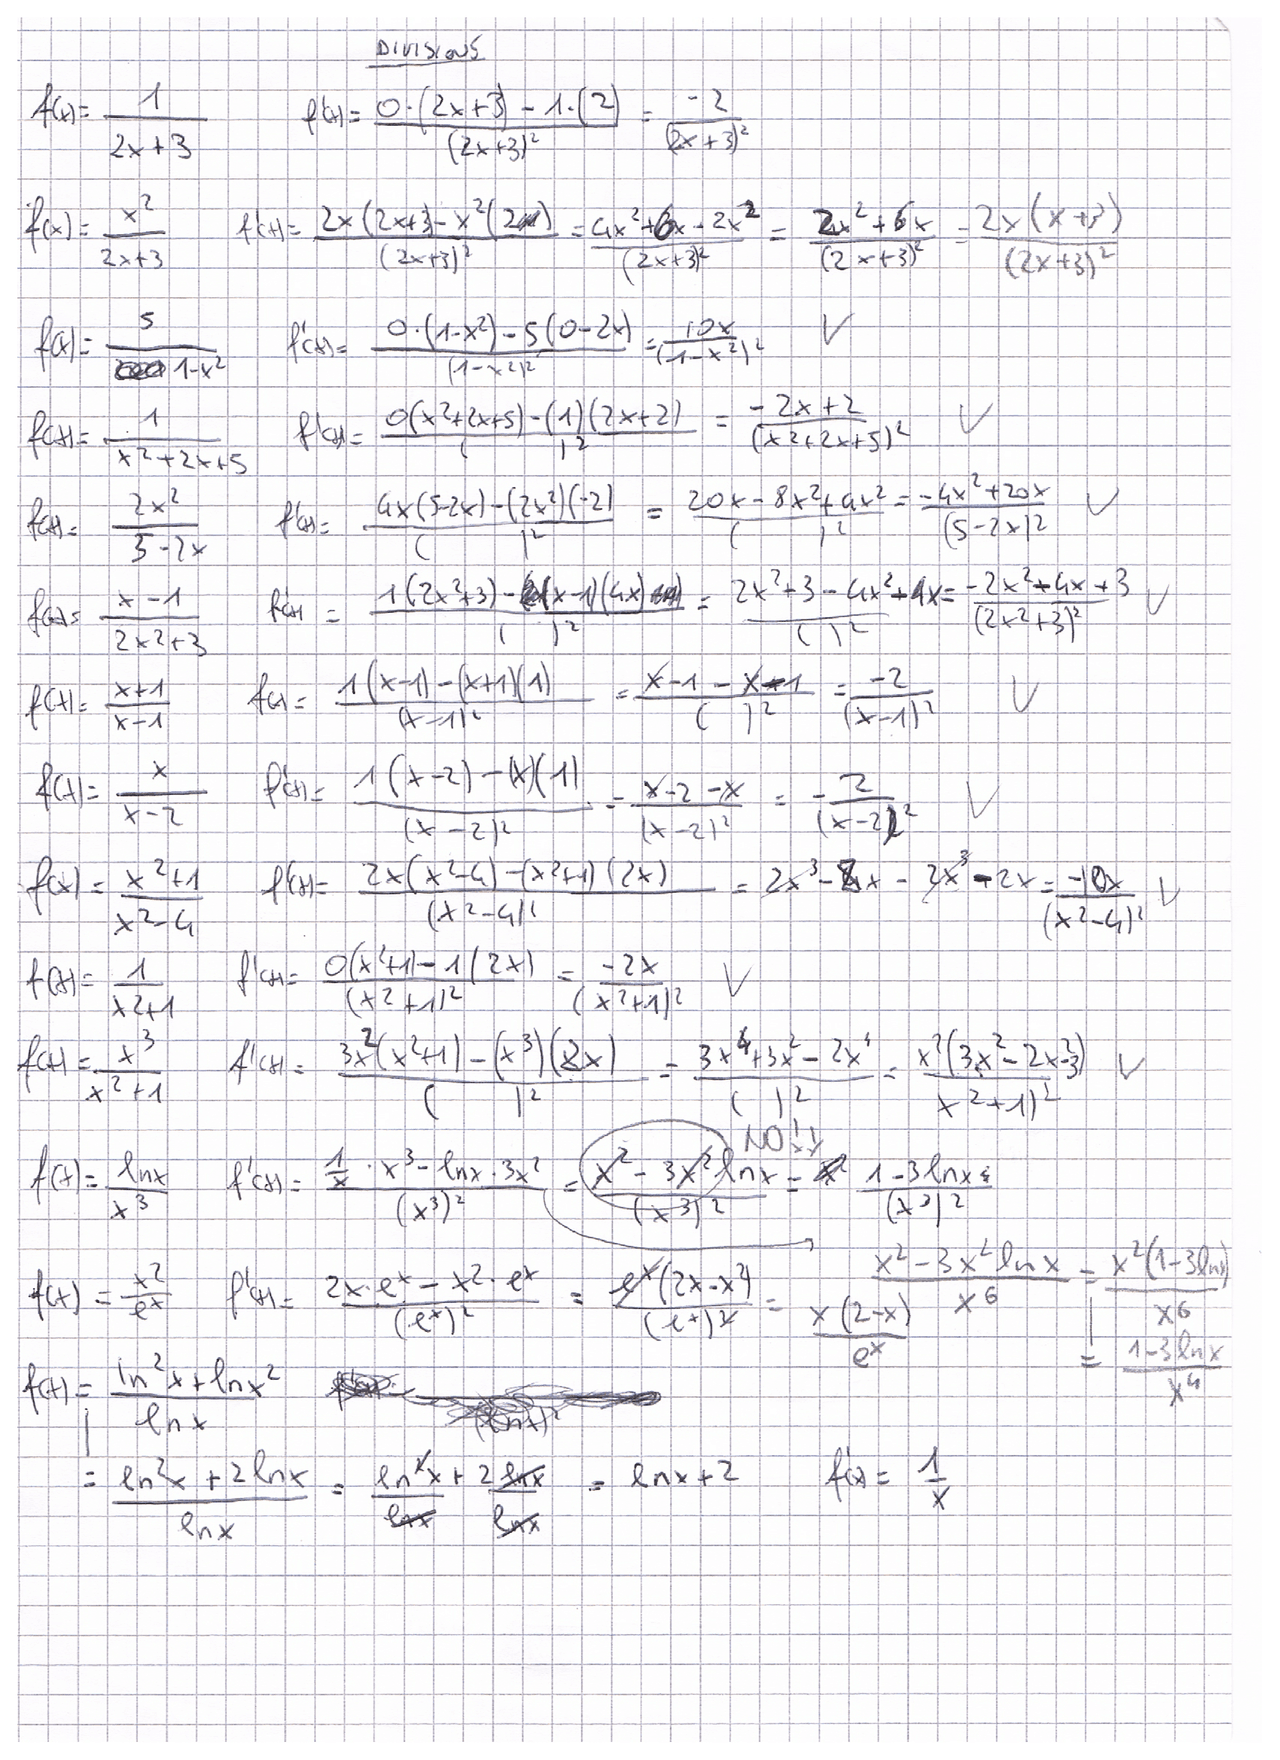 DIVISIONS
f(x) = 1/(2x+3)   f'(x) = (0·(2x+3) - 1·(2))/(2x+3)² = -2/(2x+3)²
f(x) = x²/(2x+3)   f'(x) = (2x(2x+3) - x²(2))/(2x+3)² = (4x²+6x-2x²)/(2x+3)² = (2x²+6x)/(2x+3)² = 2x(x+3)/(2x+3)²
f(x) = 5/(1-x²)   f'(x) = (0·(1-x²) - 5(0-2x))/(1-x²)² = 10x/(1-x²)² ✓
f(x) = 1/(x²+2x+5)   f'(x) = (0(x²+2x+5) - (1)(2x+2))/( )² = (-2x+2)/(x²+2x+5)² ✓
f(x) = 2x²/(5-2x)   f'(x) = (4x(5-2x) - (2x²)(-2))/( )² = (20x-8x²+4x²)/( )² = (-4x²+20x)/(5-2x)² ✓
f(x) = (x-1)/(2x²+3)   f'(x) = (1(2x²+3) - (x-1)(4x))/( )² = (2x²+3-4x²+4x)/( )² = (-2x²+4x+3)/(2x²+3)² ✓
f(x) = (x+1)/(x-1)   f(x) = (1(x-1) - (x+1)(1))/(x-1)² = (x-1-x-1)/( )² = -2/(x-1)² ✓
f(x) = x/(x-2)   f'(x) = (1(x-2) - (x)(1))/(x-2)² = (x-2-x)/(x-2)² = -2/(x-2)² ✓
f(x) = (x²+1)/(x²-4)   f'(x) = (2x(x²-4) - (x²+1)(2x))/(x²-4)² = 2x³-8x - 2x³-2x = -10x/(x²-4)² ✓
f(x) = 1/(x²+1)   f'(x) = (0(x²+1) - 1(2x))/(x²+1)² = -2x/(x²+1)² ✓
f(x) = x³/(x²+1)   f'(x) = (3x²(x²+1) - (x³)(2x))/( )² = (3x⁴+3x²-2x⁴)/( )² = x²(3x²-2x²+3)/(x²+1)² ✓
NO!!
f(x) = lnx/x³   f'(x) = (1/x · x³ - lnx · 3x²)/(x³)² = (x² - 3x² lnx)/(x³)² = (1-3lnx)/(x³)²
(x² - 3x² lnx)/x⁶ = x²(1-3lnx)/x⁶
f(x) = x²/eˣ   f'(x) = (2x·eˣ - x²·eˣ)/(eˣ)² = eˣ(2x-x²)/(eˣ)² = x(2-x)/eˣ
= (1-3lnx)/x⁴
f(x) = (ln²x + lnx²)/lnx   (lnx)²
= (ln²x + 2lnx)/lnx = ln²x/lnx + 2 lnx/lnx = lnx+2   f'(x) = 1/x